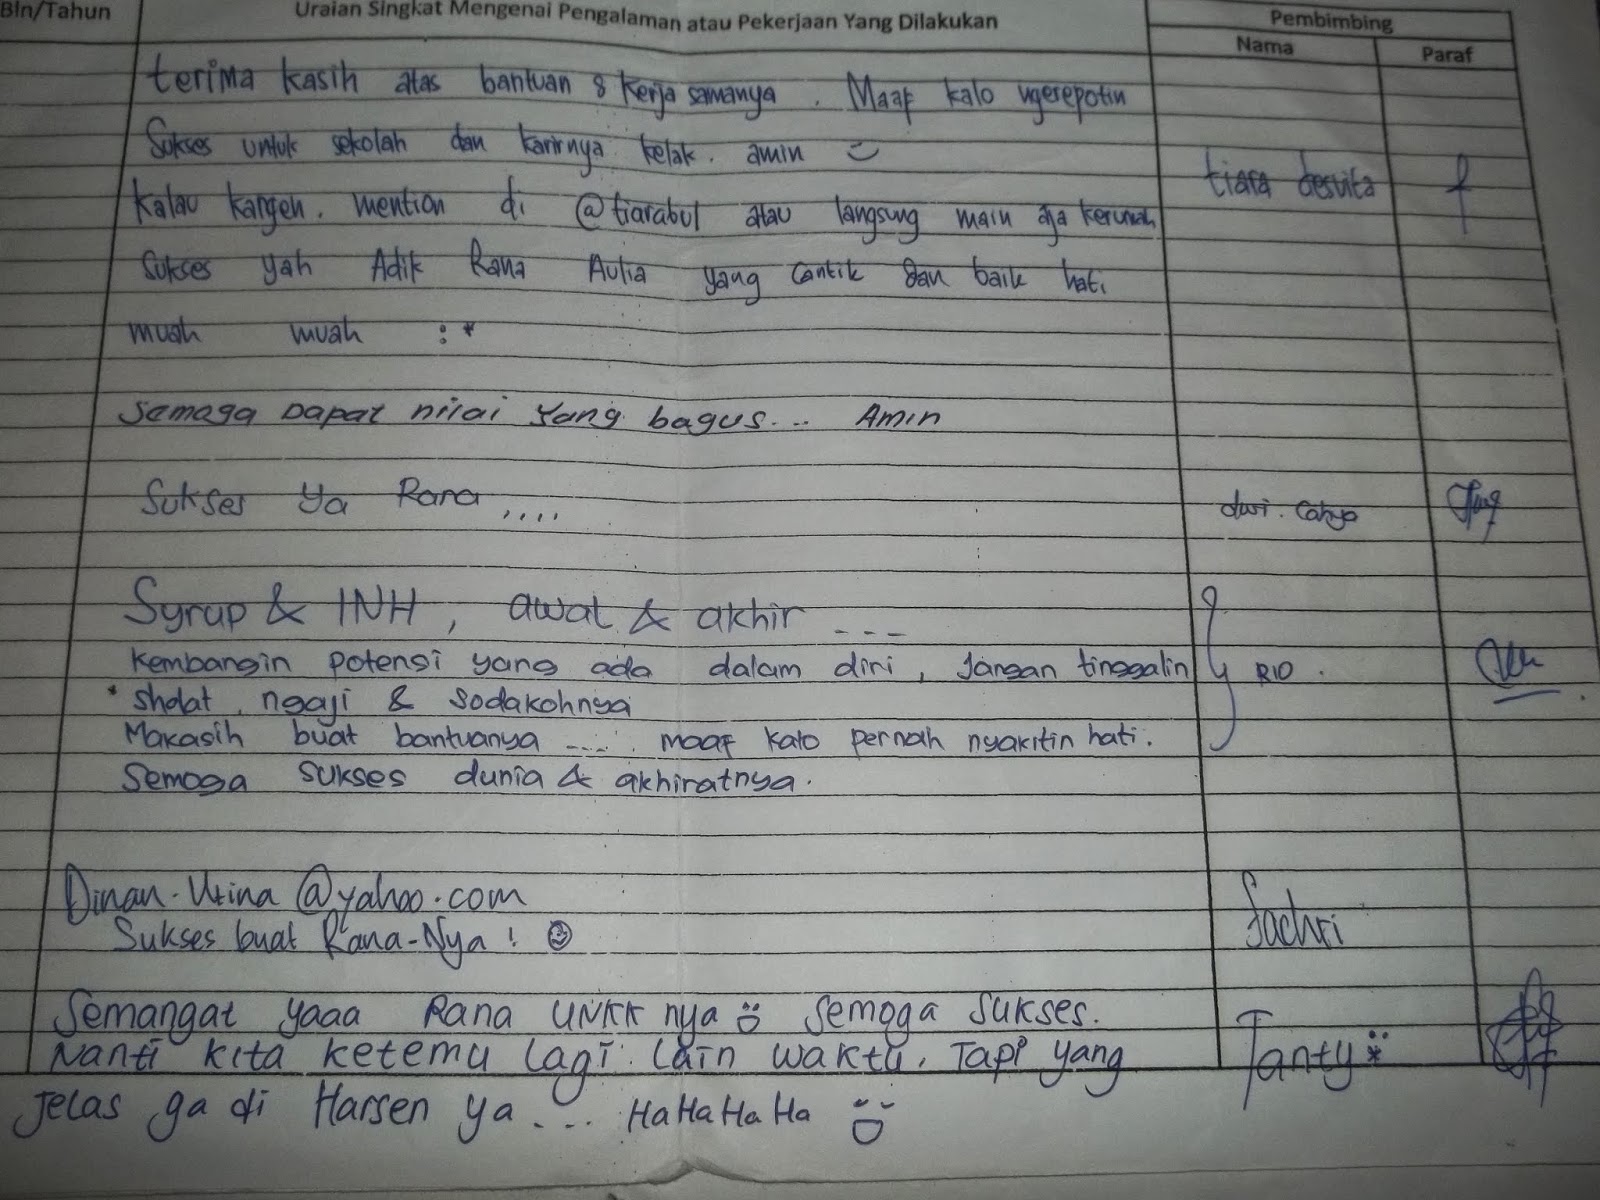 Bln/Tahun Uraian Singkat Mengenai Pengalaman atau Pekerjaan Yang Dilakukan Pembimbing
Nama Paraf
terima kasih atas bantuan & kerja samanya. Maaf kalo ngerepotin
Sukses untuk sekolah dan karirnya kelak. amin
tiara desvita
Kalau kangen. mention di @tiarabul atau langsung main aja kerumah
Sukses yah Adik Rana Aulia yang cantik dan baik hati
muah muah :*
semoga Dapat nilai yang bagus... Amin
Sukses Ya Rana ,,,, dwi. cahyo
Syrup & INH, awal & akhir ---
Kembangin potensi yang ada dalam diri, Jangan tinggalin RIO.
sholat, ngaji & sodakohnya
Makasih buat bantuanya ..... maaf kalo pernah nyakitin hati.
Semoga sukses dunia & akhiratnya.
Dinan-Utina @yahoo.com
Sukses buat Rana-Nya! Fachri
Semangat yaaa Rana UNKK nya Semoga Sukses.
Nanti kita ketemu lagi lain waktu. Tapi yang Tanty
Jelas ga di Harsen ya ... HaHaHaHa